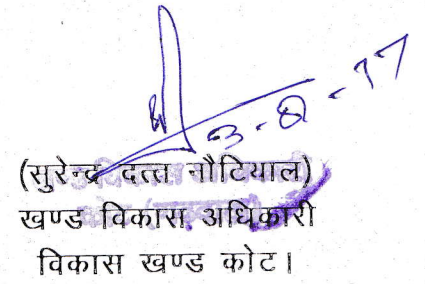 3-8-17
(सुरेन्द्र दत्त नौटियाल)
खण्ड विकास अधिकारी
विकास खण्ड कोट।